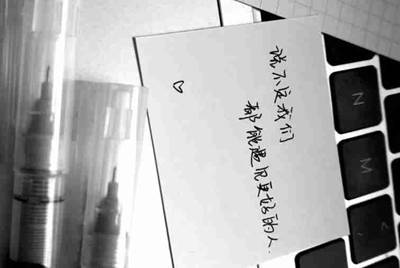 说不定我们
都能遇见更好的人.
N
M